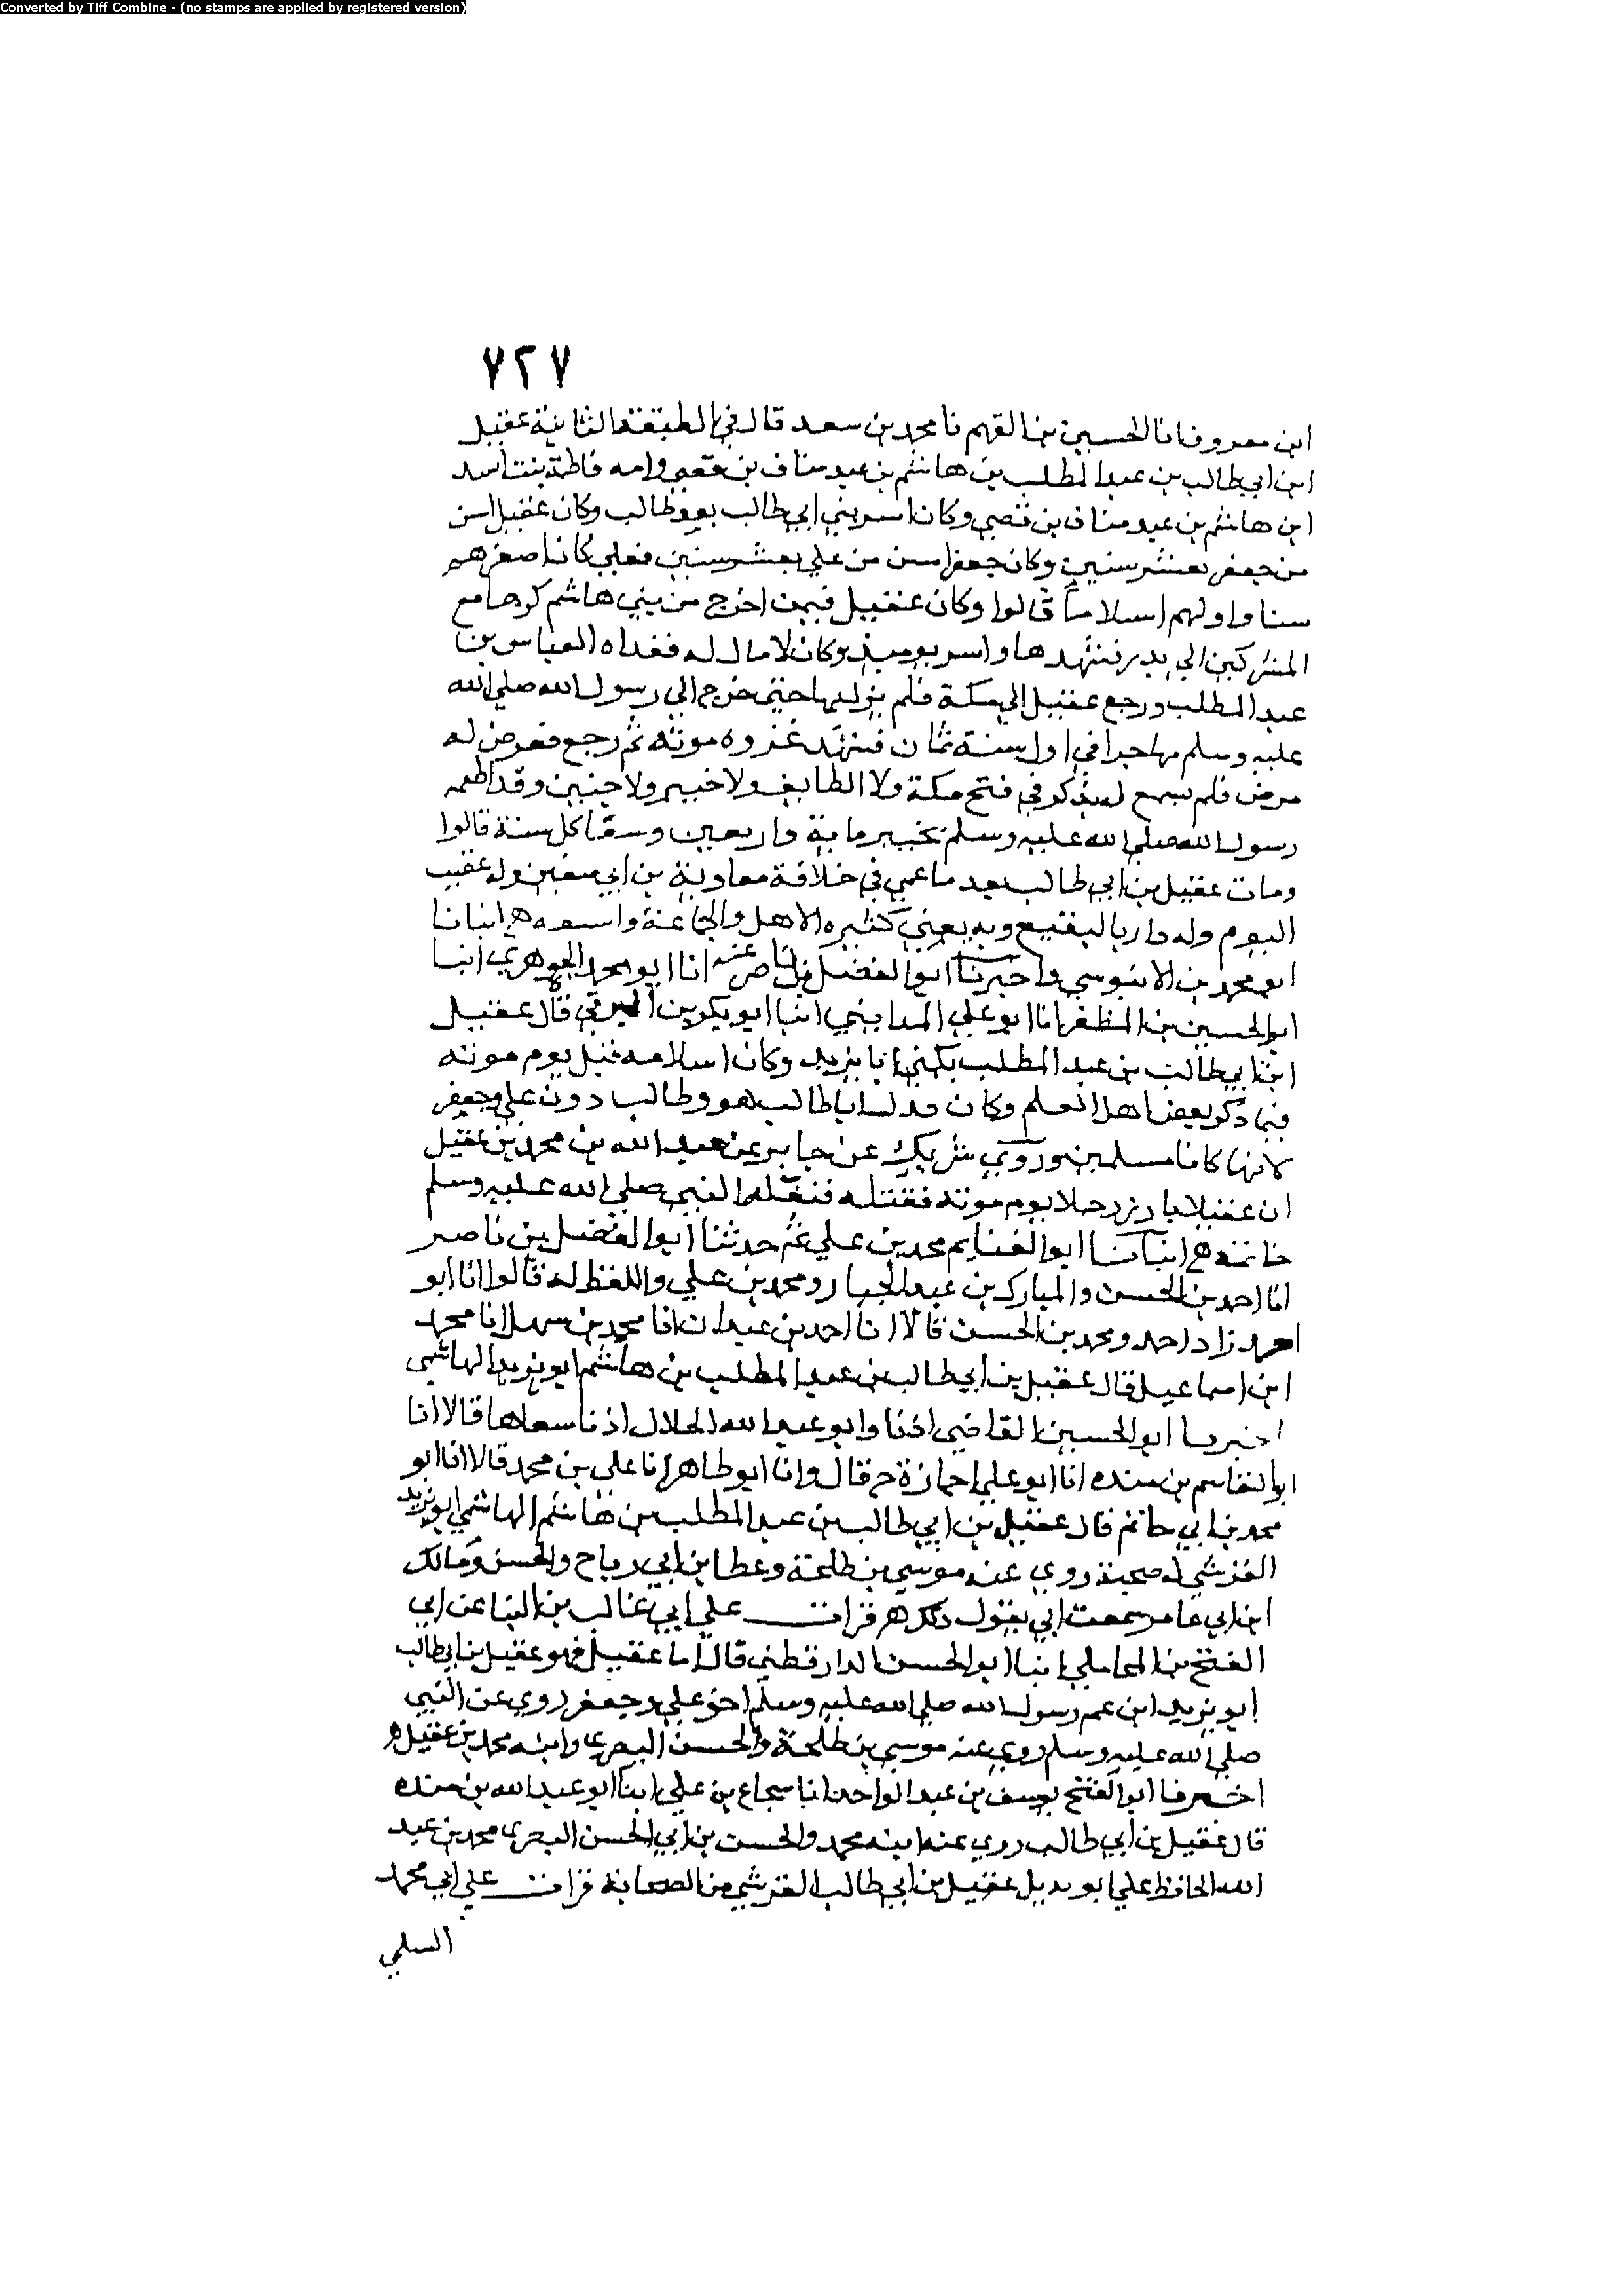 Converted by Tiff Combine - (no stamps are applied by registered version)
٧٢٧
ابن معروف انا الحسين بن الفهم نا محمد بن سعد قال في الطبقة الثانية عقيل
ابن ابي طالب بن عبد المطلب بن هاشم بن عبد مناف بن قصي وامه فاطمة بنت اسد
ابن هاشم بن عبد مناف بن قصي وكان اسن بني ابي طالب بعد طالب وكان عقيل اسن
من جعفر بعشر سنين وكان جعفر اسن من علي بعشر سنين فعلي كان اصغرهم
سنا واولهم اسلاما قالوا وكان عقيل فيمن اخرج من بني هاشم كرها مع
المشركين الي بدر فشهدها واسر يوميذ وكان لا مال له ففداه العباس بن
عبد المطلب ورجع عقيل الي مكة فلم يزل بها حتي خرج الي رسول الله صلي الله
عليه وسلم مهاجرا في اول سنة ثمان فشهد غزوه موته ثم رجع فعرض له
مرض فلم يسمع له بذكر في فتح مكة ولا الطايف ولا خيبر ولا حنين وقد اطعمه
رسول الله صلي الله عليه وسلم بخيبر ماية واربعين وسقا كل سنة قالوا
ومات عقيل بن ابي طالب بعد ما عمي في خلافة معاوية بن ابي سفين وله عقب
اليوم وله دار بالبقيع ربه يعني كثيره الاهل والجماعة واسعه ه انبانا
ابو محمد بن الابنوسي واخبرنا ابو الفضل بن ناصر عنه انا ابو محمد الجوهري انبا
ابو الحسين بن المظفر انا ابو علي المدايني انبا ابو بكر بن البرقي قال عقيل
ابن ابي طالب بن عبد المطلب يكني ابا يزيد وكان اسلامه قبل يوم موته
فيما ذكر بعض اهل العلم وكان ورث ابا طالب هو وطالب دون علي وجعفر
لانهما كانا مسلمين وروي شريك عن جابر عن عبد الله بن محمد بن عقيل
ان عقيلا بارز رجلا يوم موته فقتله فنفله النبي صلي الله عليه وسلم
خاتمه ه انبانا ابو الغنايم محمد بن علي ثم حدثنا ابو الفضل بن ناصر
انا احمد بن الحسن والمبارك بن عبد الجبار ومحمد بن علي واللفظ له قالوا انا ابو
احمد زاد احمد ومحمد بن الحسن قالا انا احمد بن عبدان انا محمد بن سهل انا محمد
ابن اسماعيل قال عقيل بن ابي طالب بن عبد المطلب بن هاشم ابو يزيد الهاشمي
اخبرنا ابو الحسين القاضي اذنا وابو عبد الله الخلال اذنا قالا انا
ابو القاسم بن منده انا ابو علي اجازة ح قال وانا ابو طاهر انا علي بن محمد قالا انا ابو
محمد بن ابي حاتم قال عقيل بن ابي طالب بن عبد المطلب بن هاشم الهاشمي ابو يزيد
القرشي له صحبة روي عنه موسي بن طلحة وعطا بن ابي رباح والحسن ومالك
ابن ابي عامر سمعت ابي يقول ذلك ه قرات علي ابي غالب بن البنا عن ابي
الفتح بن المحاملي انبا ابو الحسن الدارقطني قال اما عقيل فهو عقيل بن ابي طالب
ابو يزيد ابن عم رسول الله صلي الله عليه وسلم اخو علي وجعفر روي عن النبي
صلي الله عليه وسلم روي عنه موسي بن طلحة والحسن البصري وابنه محمد بن عقيل ه
اخبرنا ابو الفتح يوسف بن عبد الواحد انا شجاع بن علي انبا ابو عبد الله بن منده
قال عقيل بن ابي طالب روي عنه ابنه محمد والحسن بن ابي الحسن البصري محمد بن عبد
الله الحافظ علي ابو يزيد عقيل بن ابي طالب القرشي من الصحابة قرات علي ابي محمد
السلمي